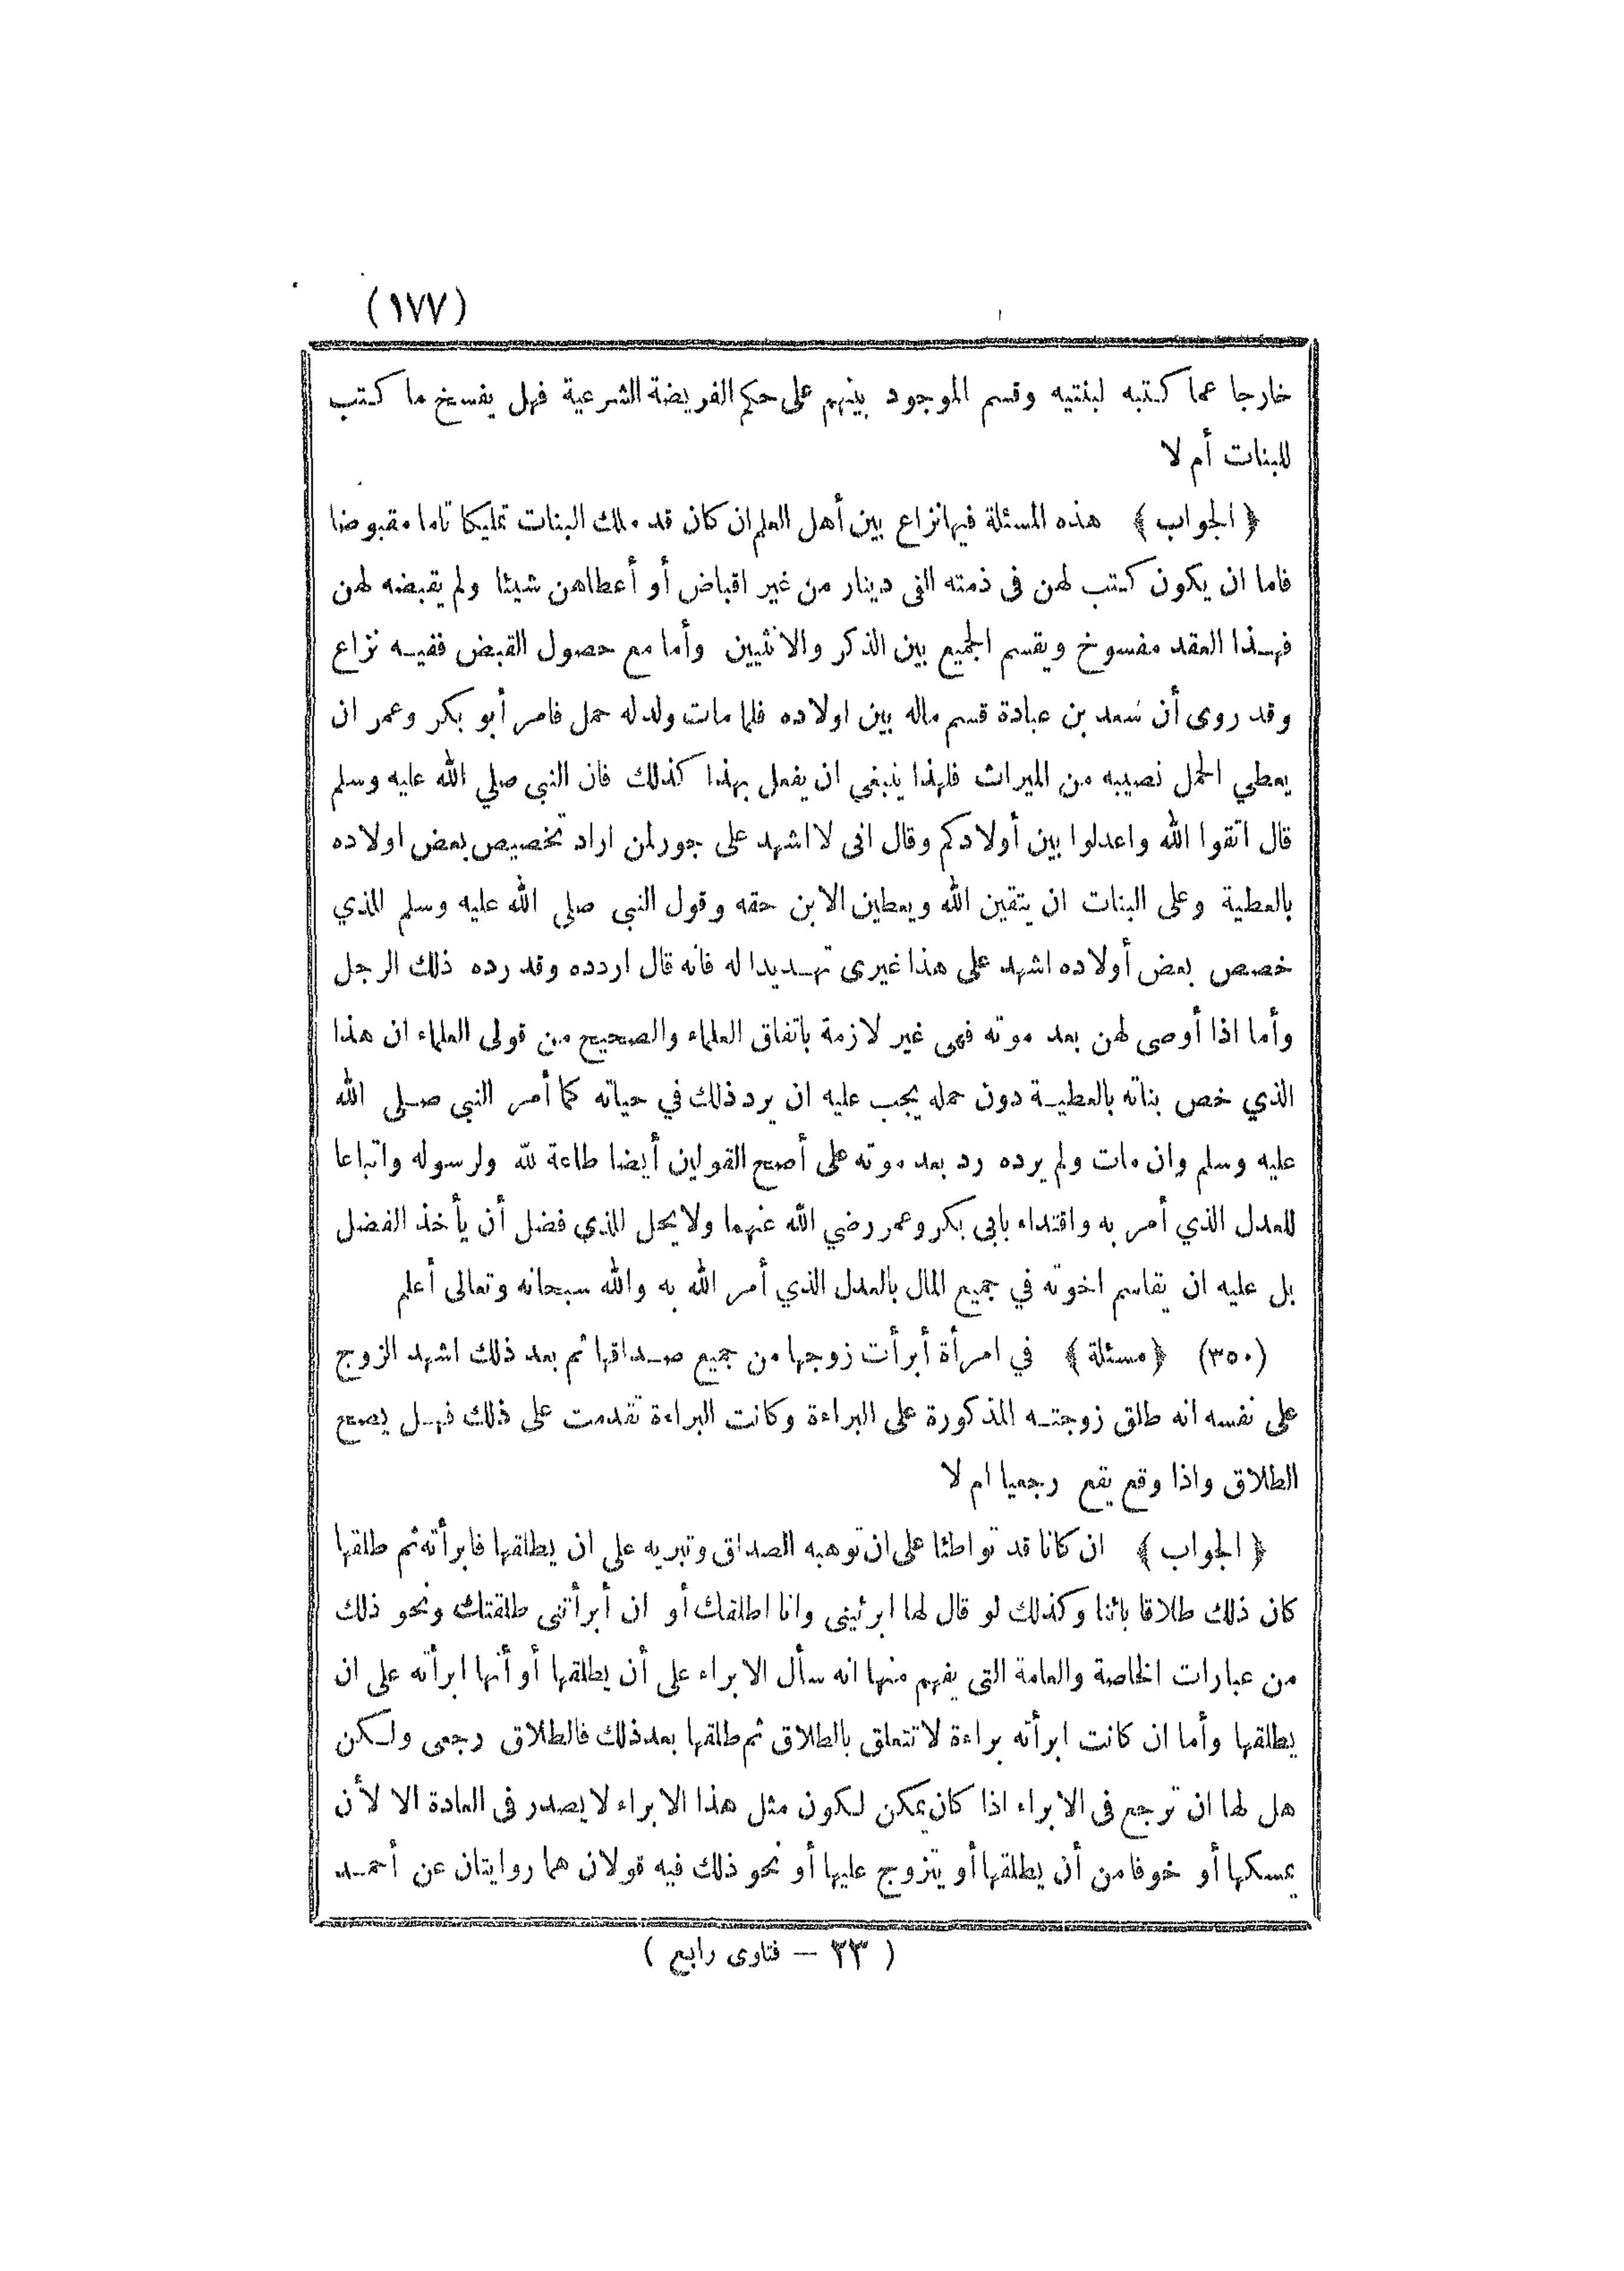 (١٧٧)
خارجا عما كتبه لبنتيه وقسم الموجود بينهم على حكم الفريضة الشرعية فهل يفسخ ما كتب
للبنات أم لا
﴿ الجواب ﴾ هذه المسئلة فيها نزاع بين أهل العلم ان كان قد ملك البنات تمليكا تاما مقبوضا
فاما ان يكون كتب لهن فى ذمته الفى دينار من غير اقباض أو أعطاهن شيئا ولم يقبضه لهن
فهذا العقد مفسوخ ويقسم الجميع بين الذكر والانثيين وأما مع حصول القبض ففيه نزاع
وقد روى أن سعد بن عبادة قسم ماله بين اولاده فلما مات ولد له حمل فامر أبو بكر وعمر ان
يعطي الحمل نصيبه من الميراث فلهذا ينبغي ان يفعل بهذا كذلك فان النبى صلي الله عليه وسلم
قال اتقوا الله واعدلوا بين أولادكم وقال انى لا اشهد على جور لمن اراد تخصيص بعض اولاده
بالعطية وعلى البنات ان يتقين الله ويعطين الابن حقه وقول النبى صلى الله عليه وسلم للذي
خصص بعض أولاده اشهد على هذا غيرى تهديدا له فانه قال اردده وقد رده ذلك الرجل
وأما اذا أوصى لهن بعد موته فهى غير لازمة باتفاق العلماء والصحيح من قولى العلماء ان هذا
الذي خص بناته بالعطية دون حمله يجب عليه ان يرد ذلك في حياته كما أمر النبى صلى الله
عليه وسلم وان مات ولم يرده رد بعد موته على أصح القولين أيضا طاعة لله ولرسوله واتباعا
للعدل الذي أمر به واقتداء بابى بكر وعمر رضي الله عنهما ولا يحل للذى فضل أن يأخذ الفضل
بل عليه ان يقاسم اخوته في جميع المال بالعدل الذي أمر الله به والله سبحانه وتعالى أعلم
(٣٥٠) ﴿ مسئلة ﴾ في امرأة أبرأت زوجها من جميع صداقها ثم بعد ذلك اشهد الزوج
على نفسه انه طلق زوجته المذكورة على البراءة وكانت البراءة تقدمت على ذلك فهل يصح
الطلاق واذا وقع يقع رجعيا ام لا
﴿ الجواب ﴾ ان كانا قد تواطئا على ان توهبه الصداق وتبريه على ان يطلقها فابرأته ثم طلقها
كان ذلك طلاقا بائنا وكذلك لو قال لها ابرئينى وانا اطلقك أو ان أبرأتنى طلقتك ونحو ذلك
من عبارات الخاصة والعامة التى يفهم منها انه سأل الابراء على أن يطلقها أو أنها ابرأته على ان
يطلقها وأما ان كانت ابرأته براءة لا تتعلق بالطلاق ثم طلقها بعد ذلك فالطلاق رجعى ولكن
هل لها ان ترجع فى الابراء اذا كان يمكن لكون مثل هذا الابراء لا يصدر فى العادة الا لأن
يمسكها أو خوفا من أن يطلقها أو يتزوج عليها أو نحو ذلك فيه قولان هما روايتان عن أحمد
( ٢٣ — فتاوى رابع )